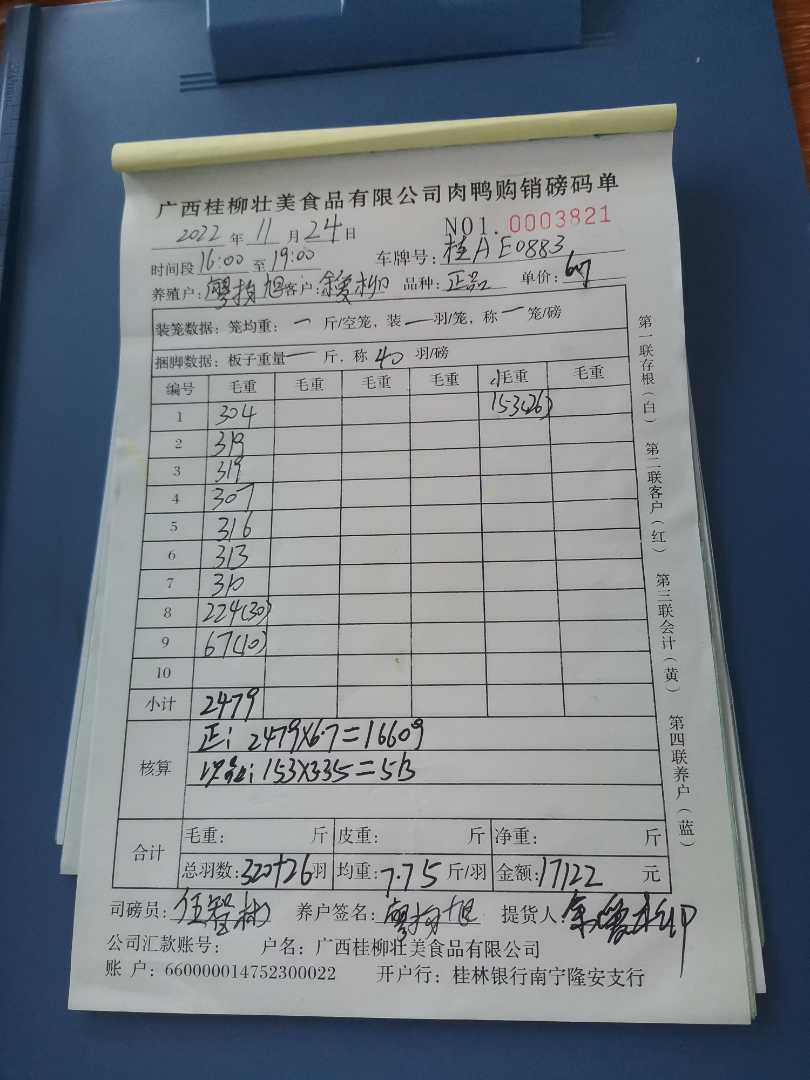 广西桂柳壮美食品有限公司肉鸭购销磅码单
2022年11月24日 NO1.0003821
时间段16:00至19:00 车牌号:桂AE0883
养殖户:廖 旭 客户: 柳 品种:正品 单价:6.7
装笼数据:笼均重:一斤/空笼,装一羽/笼,称一笼/磅
捆脚数据:板子重量一斤,称40羽/磅
编号 毛重 毛重 毛重 毛重 小毛重 毛重
1 304 153(26)
2 319
3 319
4 307
5 316
6 313
7 310
8 224(30)
9 67(10)
10
小计 2479
核算 正:2479×6.7=16609
:153×3.35=513
合计 毛重: 斤 皮重: 斤 净重: 斤
总羽数:320+26羽 均重:7.75斤/羽 金额:17122元
司磅员:伍智彬 养户签名:廖 旭 提货人
公司汇款账号: 户名:广西桂柳壮美食品有限公司
账 户:660000014752300022 开户行:桂林银行南宁隆安支行
第一联存根(白) 第二联客户(红) 第三联会计(黄) 第四联养户(蓝)